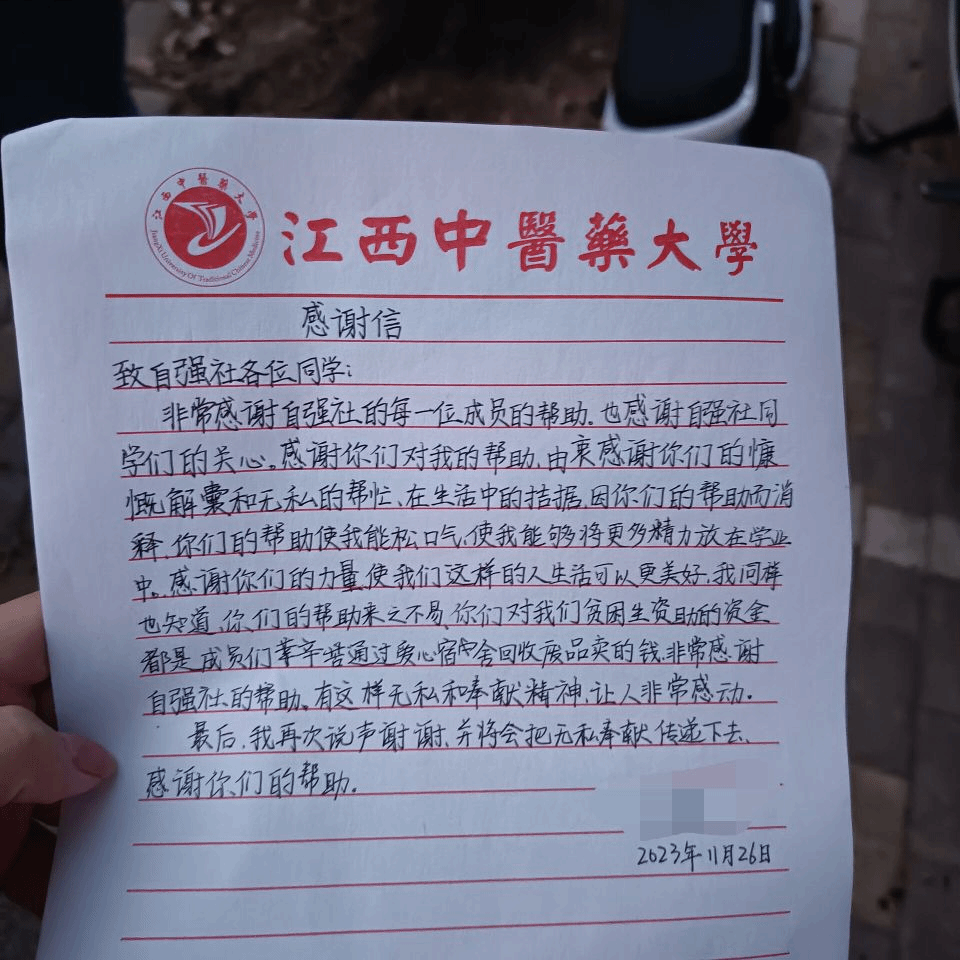 江西中醫藥大學
JiangXi University Of Traditional Chinese Medicine
江西中醫藥大學
感谢信
致自强社各位同学:
非常感谢自强社的每一位成员的帮助.也感谢自强社同
学们的关心。感谢你们对我的帮助,由衷感谢你们的慷
慨解囊和无私的帮忙、在生活中的拮据,因你们的帮助而消
释、你们的帮助使我能松口气、使我能够将更多精力放在学业
中。感谢你们的力量,使我们这样的人生活可以更美好,我同样
也知道、你们的帮助来之不易、你们对我们贫困生资助的资金
都是成员们辛辛苦通过爱心宿舍回收废品卖的钱.非常感谢
自强社的帮助。有这样无私和奉献精神、让人非常感动.
最后、我再次说声谢谢、并将会把无私奉献传递下去、
感谢你们的帮助.
2023年11月26日